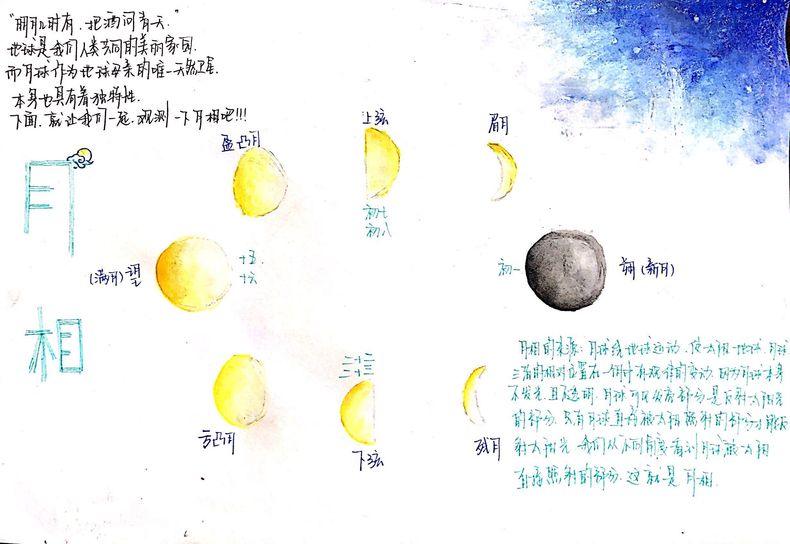 "明月几时有，把酒问青天."
地球是我们人类共同的美丽家园.
而月球作为地球母亲的唯一天然卫星.
本身也具有着独特性.
下面，就让我们一起，观测一下月相吧!!!
月
相
盈凸月
上弦
初七
初八
眉月
(满月) 望
十五.
十六
初一
朔 (新月)
亏凸月
二十二
二十三
下弦
残月
月相的来源：月球绕地球运动，使太阳、地球、月球
三者的相对位置在一个月中有规律的变动. 因为月球本身
不发光，且不透明，月球可见发亮部分是反射太阳光
的部分. 只有月球直接被太阳照射的部分才能反
射太阳光. 我们从不同角度看到月球被太阳
直接照射的部分，这就是月相.